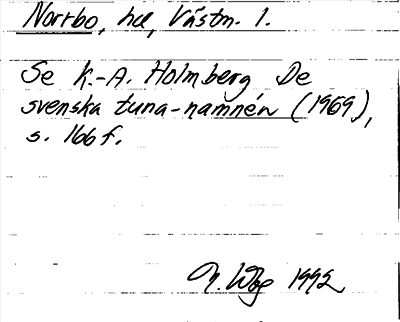 Norrbo, hd, Västm. l.
Se K.-A. Holmberg De
svenska tuna-namnen (1969),
s. 166 f.
N. Wbg 1992